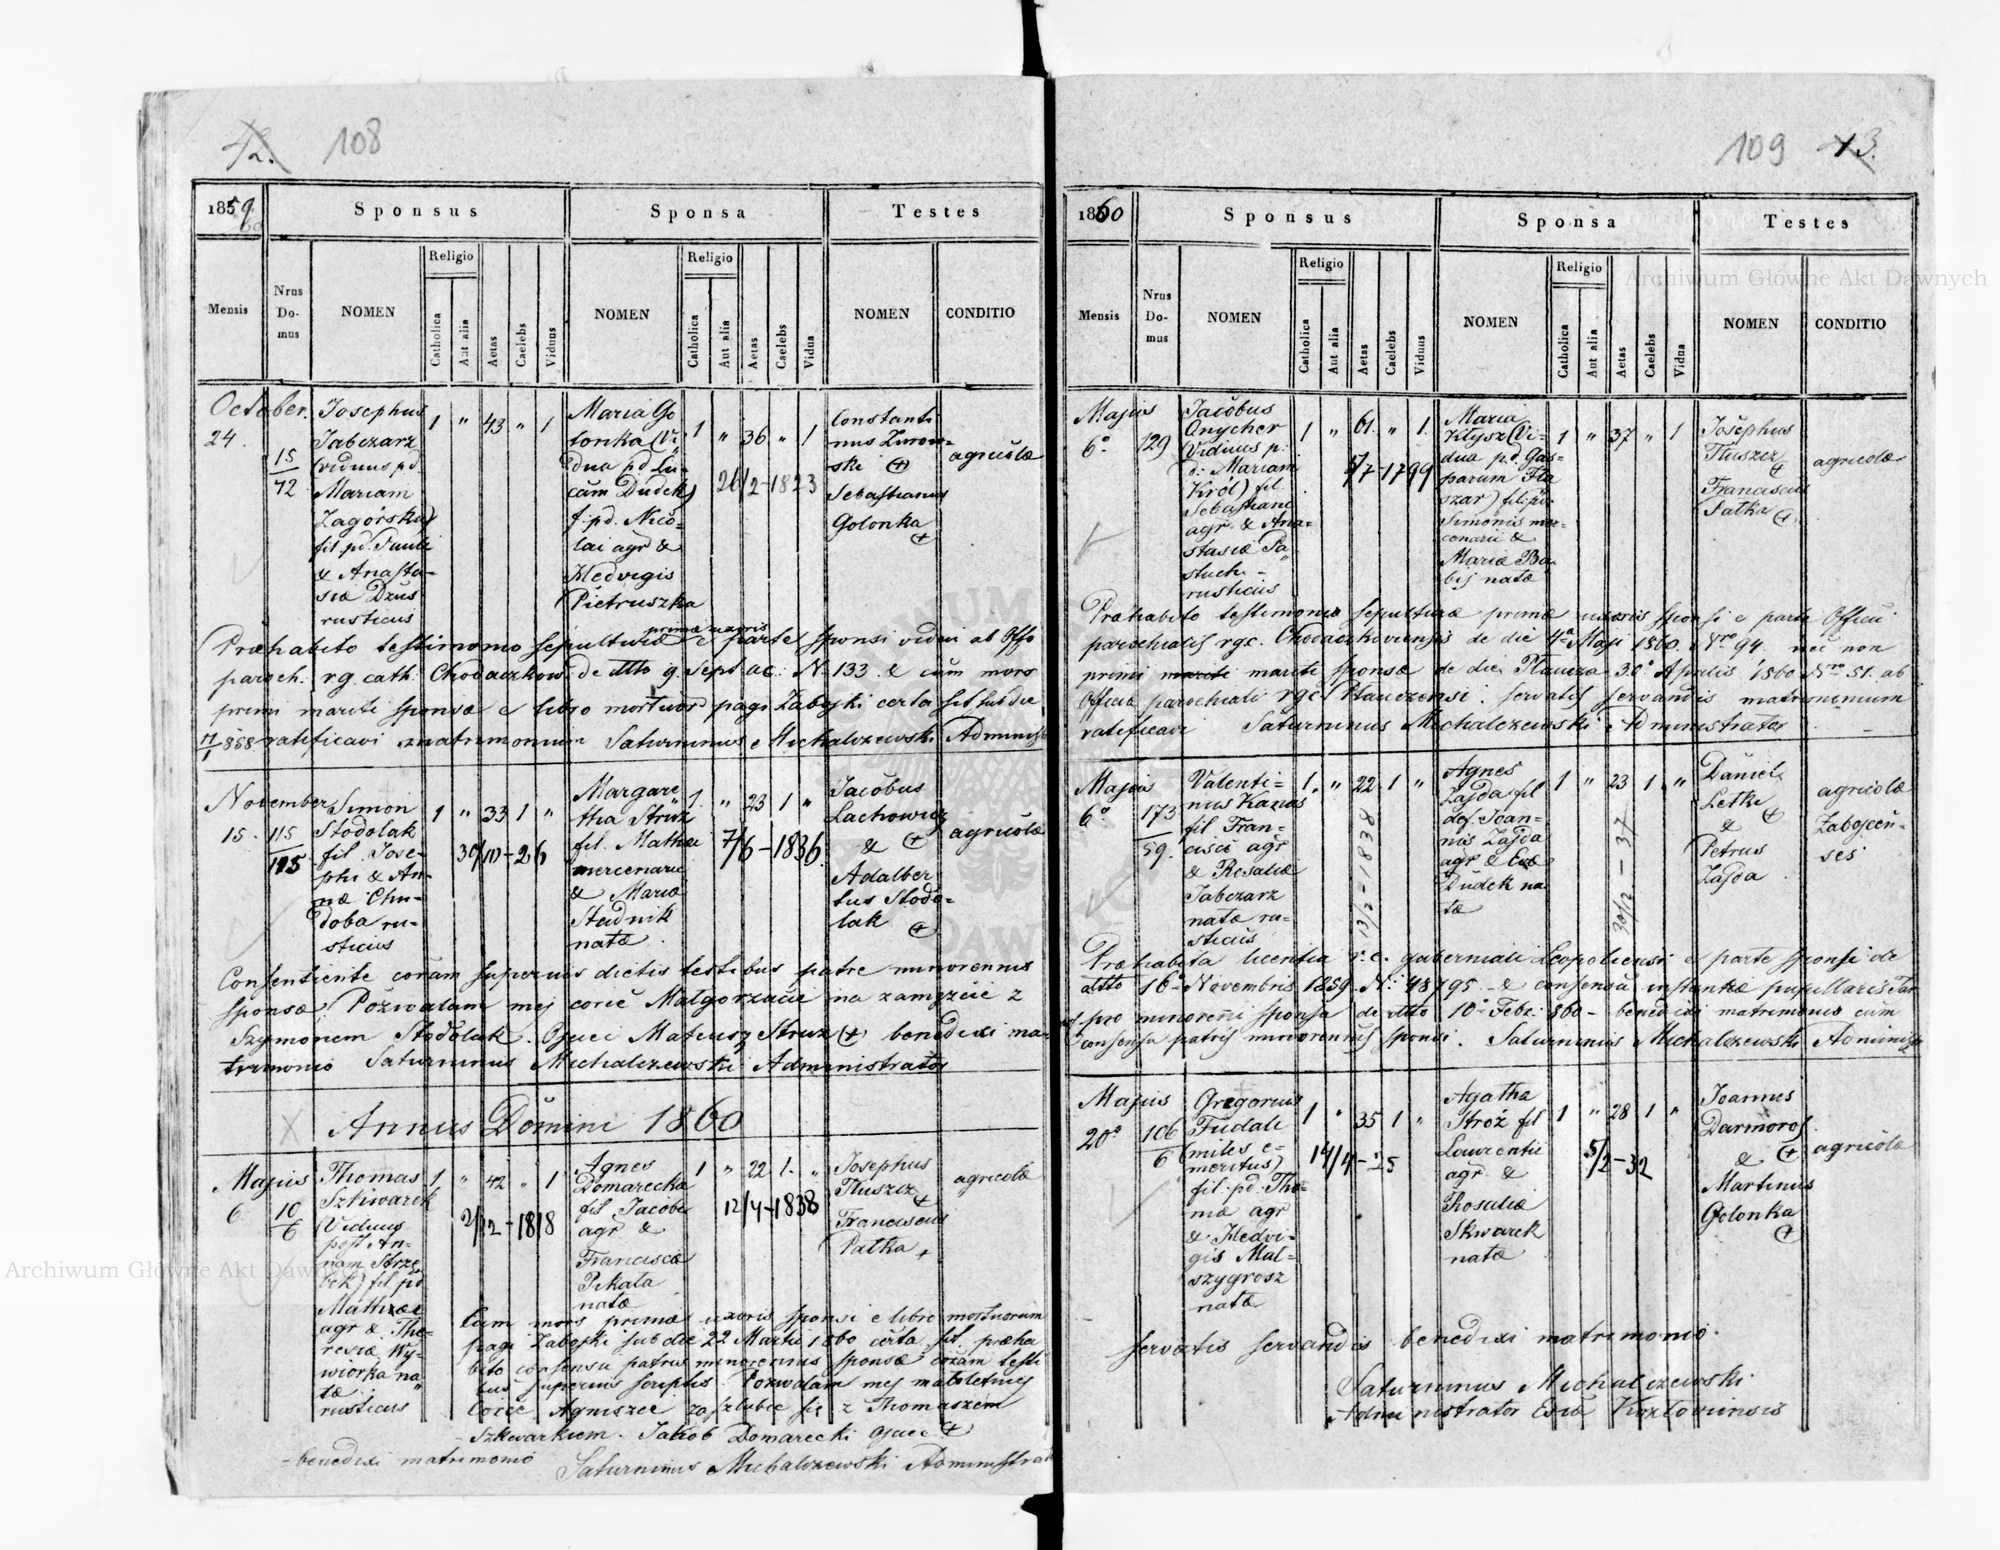 42. 108
1859 Sponsus Sponsa Testes
60
Mensis Nrus Do- mus NOMEN Religio Catholica Aut alia Aetas Caelebs Viduus NOMEN Religio Catholica Aut alia Aetas Caelebs Vidua NOMEN CONDITIO
October.
24.
15
72
Josephus
Jabczarz
(viduus p d
Mariam
Zagórska)
fil pd. Pauli
& Anasta-
siæ Dzus
rusticus
1 " 43 " 1
Maria Go
lonka (Vi
dua pd Lu-
cam Dudek)
f. pd. Nico-
lai agr &
Hedvigis
Pietruszka
1 " 36 " 1
26/2-1823
Constanti
nus Zurow-
ski +
Sebastianus
Golonka
+
agricolæ
primæ uxoris
Præhabito testimonio sepulturæ e parte sponsi vidui ab Offo
paroch. rg. cath. Chodaczkow. de dtto 9 Sept ac. N. 133. & cum mors
primi mariti sponsæ e libro mortuor pagi Zabojki certa sit sub die
17/1 858 ratificavi matrimonium Saturninus Michalczewski Administr
November
15.
115
115
Simon
Stodolak
fil. Jose-
phi & An-
næ Chu-
doba ru-
sticus
1 " 33 1 "
30/10-26
Margare
tha Struz
fil. Mathæi
mercenarii
& Mariæ
Studnik
natæ.
1. " 23 1 "
7/6-1836.
Jacobus
Lachowicz
& +
Adalber
tus Stodo-
lak +
agricolæ
Consentiente coram superius dictis testibus patre minorennis
sponsæ. Pozwalam mej corce Małgorzacie na zamęzcie z
Szymonem Stodolak. Ojciec Mateusz Struz + benedixi ma-
trimonio Saturninus Michalczewski Administrator
X Annus Domini 1860
Majus
6
10
6
Thomas
Szkwarek
(Viduus
post An-
nam Strze
lek) fil pd
Mathæi
agr & The-
resiæ Wy-
wiorka na
tæ.
rusticus
1 " 42 " 1
2/12-1818
Agnes
Domarecka
fil Jacobi
agr &
Franciscæ
Pikata
natæ
1 " 22 1. "
12/4-1838
Josephus
Tłuszcz
+
Franciscus
Patka +
agricolæ
Cum mors primæ uxoris sponsi e libro mortuorum
pagi Zabojki sub die 22 Martii 1860 certa sit præha
bito consensu patris minorennis sponsæ coram testi
bus superius scriptis. Pozwalam mej małoletniej
corce Agniszce zaszlubic się z Thomaszem
Szkwarkiem. Jakob Domarecki ojciec +
- benedixi matrimonio Saturninus Michalczewski Administrat
109 43.
1860 Sponsus Sponsa Testes
Mensis Nrus Do- mus NOMEN Religio Catholica Aut alia Aetas Caelebs Viduus NOMEN Religio Catholica Aut alia Aetas Caelebs Vidua NOMEN CONDITIO
Majus
6o
129
Jacobus
Onycher
(Viduus p.
d. Mariam
Król) fil.
Sebastiani
agr & Ana-
stasiæ Pa
stuch -
rusticus
1 " 61. " 1.
5/7-1799
Maria
Kłysz (Vi-
dua p d Gas-
parum Fla
szar) fil pd.
Simonis mer-
cenarii &
Mariæ Ba
bij natæ
1 " 37 " 1
Josephus
Tłuszcz
+
Franciscus
Patka +
agricolæ
Præhabito testimonio sepulturæ primæ uxoris sponsi e parte Officii
parochialis rgc. Chodaczkoviensis de die 4a Maji 1860. Nro 94. nec non
primi mariti mariti sponsæ de die Płaucza 30o Aprilis 1860 Nro 51. ab
Officio parochiali rgc Płauczensi. servatis servandis matrimonium
ratificavi Saturninus Michalczewski Administrator
Majus
6o
173
59.
Valenti-
nus Kanas
fil. Fran-
cisci agr
& Rosaliæ
Jabczarz
natæ ru-
sticus
1. " 22. 1 "
13/2-1838
Agnes
Zajda fil
def. Joan-
nis Zajda
agr & Evæ
Dudek na
tæ
1 " 23 1. "
30/12-37
Daniel
Letki
& +
Petrus
Zajda.
agricolæ
Zabojeci-
ses
Præhabita licentia r.c. guberniali Leopoliensi e parte sponsi de
dtto 16o Novembris 1859. N: 48795. & consensu instantiæ pupillaris Tar
pro minoreni sponsa de dtto 10o Febr. 860 - benedixi matrimonio cum
Consensu patris minorennis sponsi. Saturninus Michalczewski Administr
Majus
20o
106
6
Gregorius
Fudali
(miles e-
meritus)
fil. pd. Tho-
mæ agr
& Hedvi-
gis Mal-
szygrosz
natæ
1 " 35 1 "
14/4-25
Agatha
Stróż fil
Laurentii
agr &
Rosaliæ
Skwarek
natæ
1 " 28 1 "
5/2-32
Joannes
Darmoros
& +
Martinus
Golonka
+
agricolæ
servatis servandis benedixi matrimonio.
Saturninus Michalczewski
Administrator Ecclæ Kozłoviensis
Archiwum Główne Akt Dawnych
Archiwum Główne Akt Dawnych